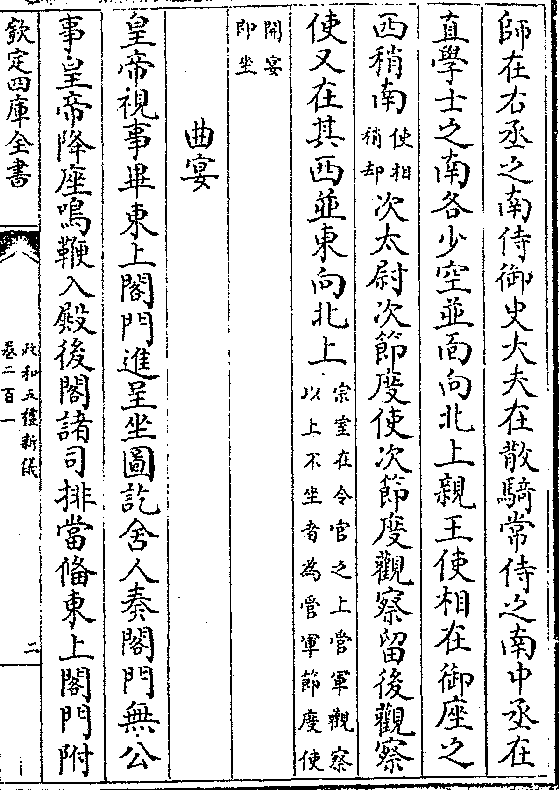 師在右丞之南侍御史大夫在散騎常侍之南中丞在
直學士之南各少空並面向北上親王使相在御座之
西稍南使相稍却次太尉次節度使次節度觀察留後觀察
使又在其西並東向北上宗室在令官之上管軍觀察以上不坐者為管軍節度使
開宴即坐
曲宴
皇帝視事畢東上閤門進呈坐圖訖舍人奏閤門無公
事皇帝降座鳴鞭入殿後閤諸司排當備東上閤門附
欽定四庫全書
政和五禮新儀
卷二百一
二